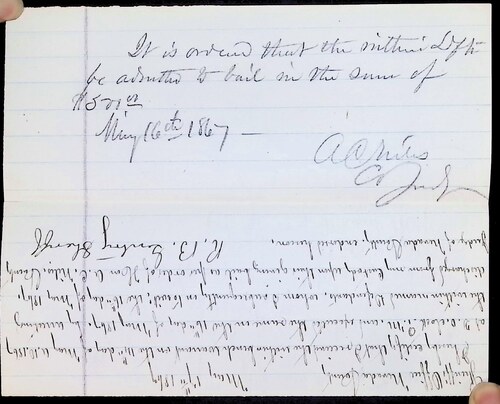 It is ordered that the within Deft
be admitted to bail in the sum of
$500
May 16th 1867 —
A C Niles
Co Judge
Sheriff's Office Nevada County
May 17th 1867
I hereby certify that I received the within bench warrant on the 16th day of May A.D. 1867
at 2 O.clock P.M. and executed the same on the 16th day of May 1867, by arresting
the within named Defendants whom I subsequently, on to wit, the 16th day of May 1867,
discharged from my custody upon their giving bail as per order of Hon A. C. Niles County
Judge of Nevada County, endorsed hereon.
R. B. Gentry Sheriff